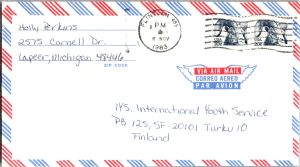 Holly Perkins
2575 Cornell Dr.
Lapeer, Michigan 48446
ZIP CODE
FLINT, MI 485
PM
NOV
1983
USA
20c
USA
20c
VIA AIR MAIL
CORREO AEREO
PAR AVION
IYS, International Youth Service
PB 125, SF-20101 Turku 10
Finland